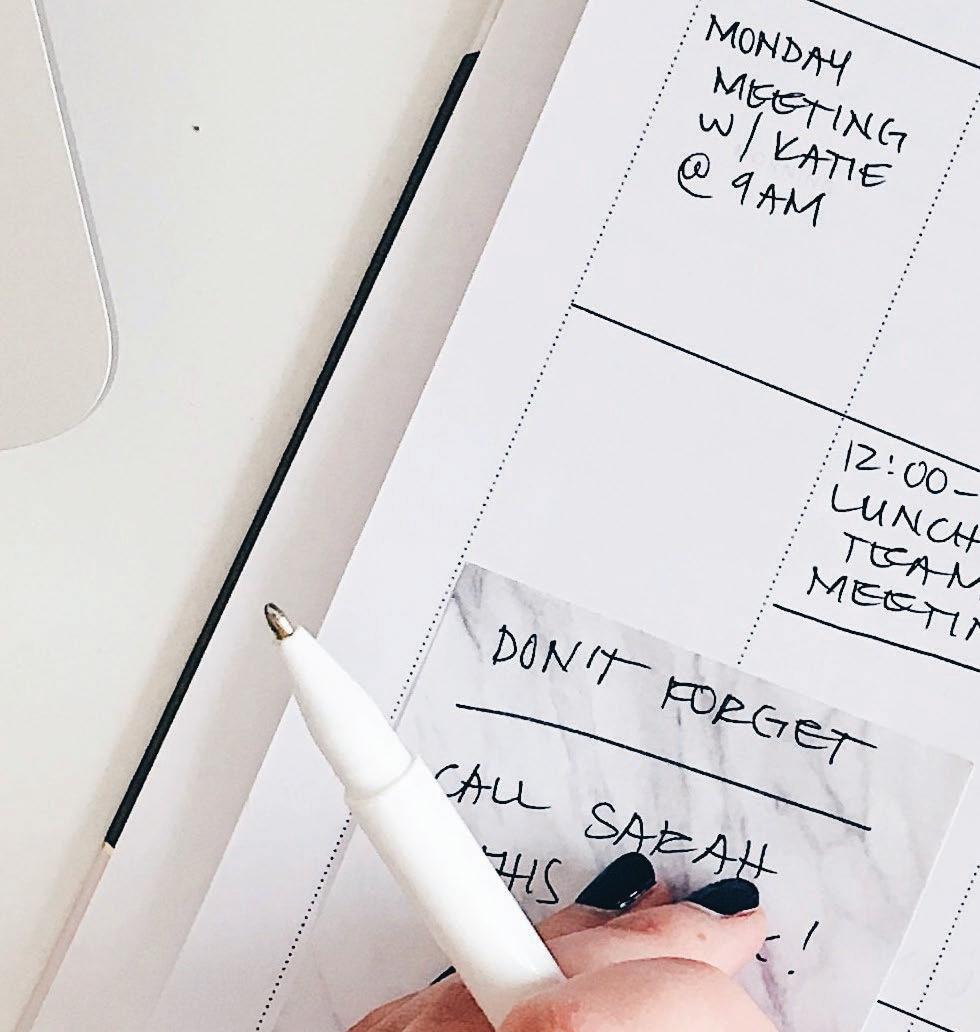 MONDAY
MEETING
W/ KATIE
@ 9AM
12:00-
LUNCH
TEAM
DON'T FORGET
CALL SARAH
THIS